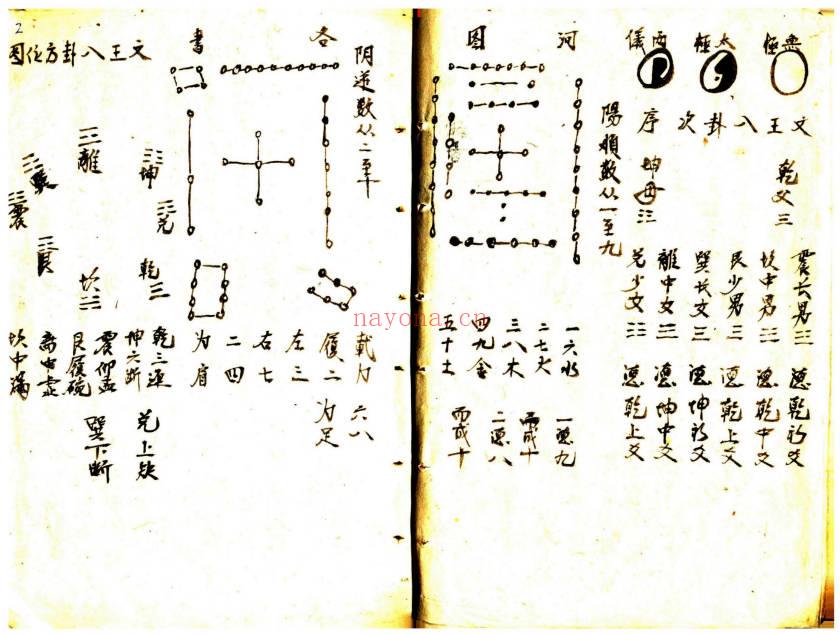 無極
太極
兩儀
文王八卦次序
乾父☰
坤母☷
震长男☳ 得乾初爻
坎中男☵ 得乾中爻
艮少男☶ 得乾上爻
巽长女☴ 得坤初爻
離中女☲ 得坤中爻
兑少女☱ 得上爻
陽順数从一至九
河图
一六水 一得九
二七火 而成十
三八木
四九金 二得八
五十土 而成十
各書
阴逆数从二至十
載九 六八
履一 为足
左三
右七
二四
为肩
2
文王八卦方位图
☷坤
☱兑
乾☰
☲離
坎☵
☴巽
☳震
☶艮
乾三連 兑上缺
坤六断
震仰盂 巽下断
艮履碗
離中虚
坎中满
nayona.cn